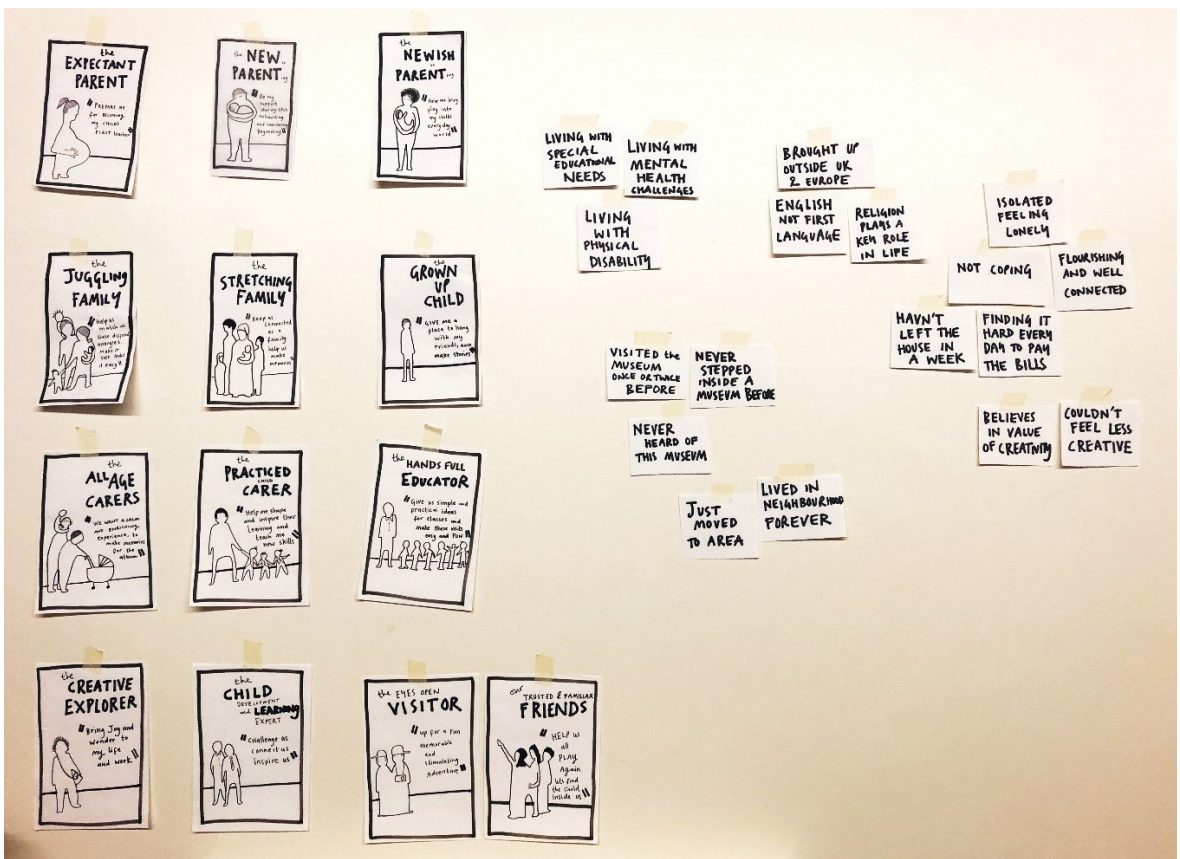 the
EXPECTANT
PARENT
"PREPARE ME
for becoming
my childs
first teacher"
the NEW
PARENT
"Be my
support
during this
exhausting
and
beginning"
the
NEWISH
PARENT
"Help me bring
play into
my childs
everyday
world"
the
JUGGLING
FAMILY
"Help us
match all
these different
energies,
make it
feel
easy"
the
STRETCHING
FAMILY
"Keep us
connected
as a
family
help us
make
memories"
the
GROWN
UP
CHILD
"GIVE me a
place to hang
with my
friends,
make stories"
the
ALL AGE
CARERS
"WE WANT A CALM
AND
experience, to
make memories
for the
album"
the
PRACTICED
CHILD
CARER
"Help me shape
and inspire their
learning and
teach me
new skills"
the
HANDS FULL
EDUCATOR
"Give us simple and
practical ideas
for classes and
make these visits
easy and FUN"
the
CREATIVE
EXPLORER
"Bring Joy and
wonder to
my life
and work"
the
CHILD
DEVELOPMENT
and LEARNING
EXPERT
"Challenge us
connect us
inspire us"
the EYES OPEN
VISITOR
"up for a fun
memorable
and
stimulating
Adventure"
our
TRUSTED & FAMILIAR
FRIENDS
"HELP us
all
PLAY
Again
the child
inside us"
LIVING WITH
SPECIAL
EDUCATIONAL
NEEDS
LIVING WITH
MENTAL
HEALTH
CHALLENGES
LIVING
WITH
PHYSICAL
DISABILITY
BROUGHT UP
OUTSIDE UK
& EUROPE
ENGLISH
NOT FIRST
LANGUAGE
RELIGION
PLAYS A
KEY ROLE
IN LIFE
ISOLATED
FEELING
LONELY
NOT COPING
FLOURISHING
AND WELL
CONNECTED
HAVN'T
LEFT THE
HOUSE IN
A WEEK
FINDING IT
HARD EVERY
DAY TO PAY
THE BILLS
VISITED the
MUSEUM
ONCE OR TWICE
BEFORE
NEVER
STEPPED
INSIDE A
MUSEUM BEFORE
NEVER
HEARD OF
THIS MUSEUM
BELIEVES
IN VALUE
OF CREATIVITY
COULDN'T
FEEL LESS
CREATIVE
JUST
MOVED
TO AREA
LIVED IN
NEIGHBOURHOOD
FOREVER